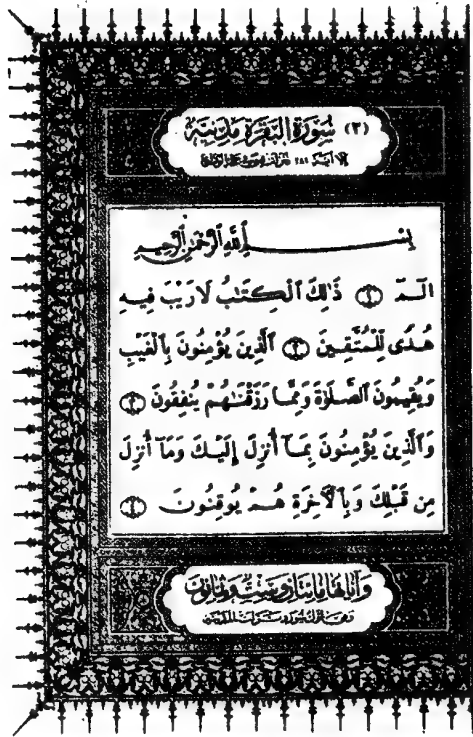 (٢) سُورَةُ الْبَقَرَةِ مَدَنِيَّة
إلا آية ٢٨١
بِسْمِ اللَّهِ الرَّحْمَٰنِ الرَّحِيمِ
الٓمٓ ١ ذَٰلِكَ الْكِتَٰبُ لَا رَيْبَ فِيهِ
هُدًى لِلْمُتَّقِينَ ٢ الَّذِينَ يُؤْمِنُونَ بِالْغَيْبِ
وَيُقِيمُونَ الصَّلَوٰةَ وَمِمَّا رَزَقْنَٰهُمْ يُنفِقُونَ ٣
وَالَّذِينَ يُؤْمِنُونَ بِمَآ أُنزِلَ إِلَيْكَ وَمَآ أُنزِلَ
مِن قَبْلِكَ وَبِالْآخِرَةِ هُمْ يُوقِنُونَ ٤
وَآيَاتُهَا مِائَتَانِ وَسِتٌّ وَثَمَانُونَ